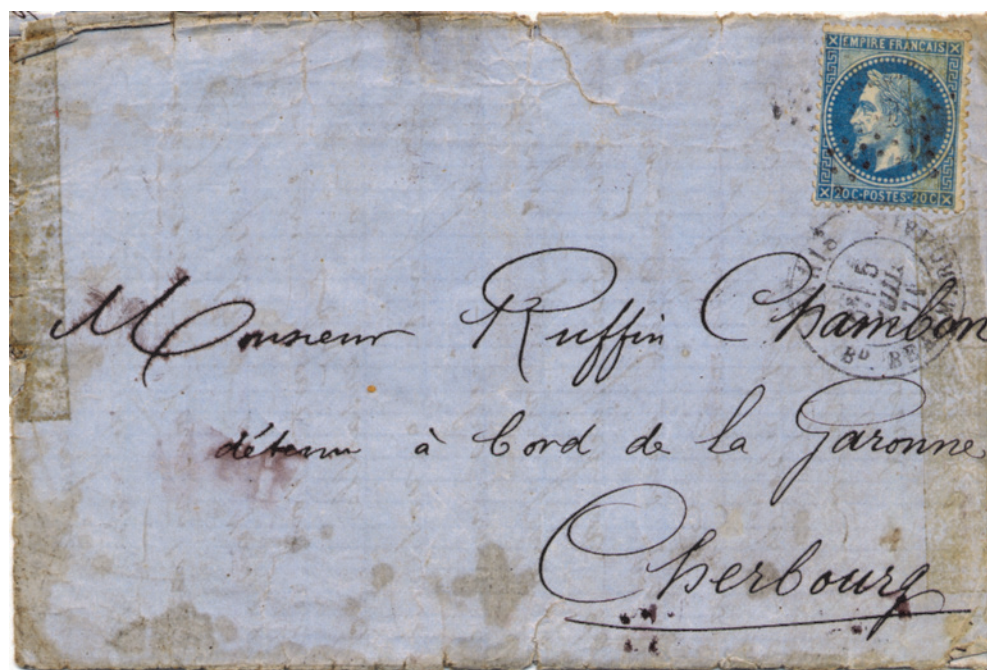 EMPIRE FRANÇAIS
20C·POSTES·20C
5
JUIL.
71
Bᴅ
Monsieur Ruffin Chambon
détenu à bord de la Garonne
Cherbourg